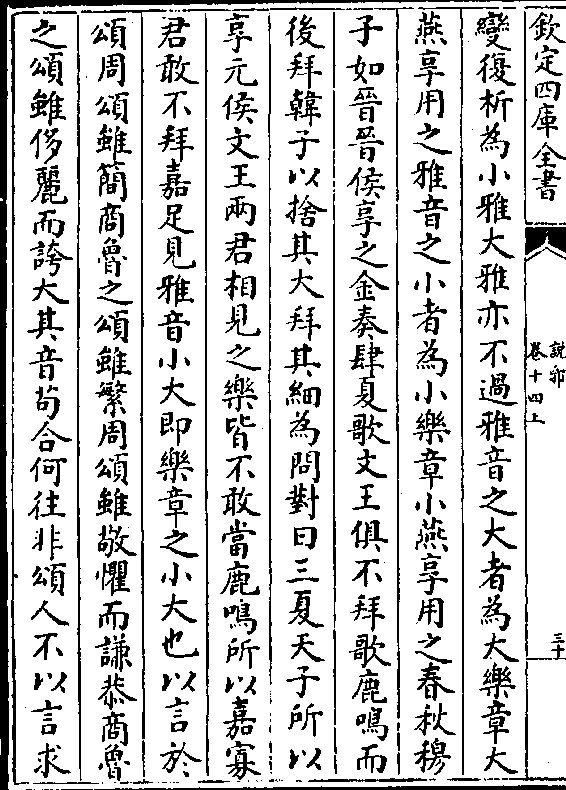 欽定四庫全書
説郛
卷十四上
三十
變復析為小雅大雅亦不過雅音之大者為大樂章大
燕享用之雅音之小者為小樂章小燕享用之春秋穆
子如晉晉侯享之金奏肆夏歌文王俱不拜歌鹿鳴而
後拜韓子以捨其大拜其細為問對曰三夏天子所以
享元侯文王兩君相見之樂皆不敢當鹿鳴所以嘉寡
君敢不拜嘉足見雅音小大即樂章之小大也以言於
頌周頌雖簡商魯之頌雖繁周頌雖敬懼而謙恭商魯
之頌雖侈麗而誇大其音苟合何往非頌人不以言求